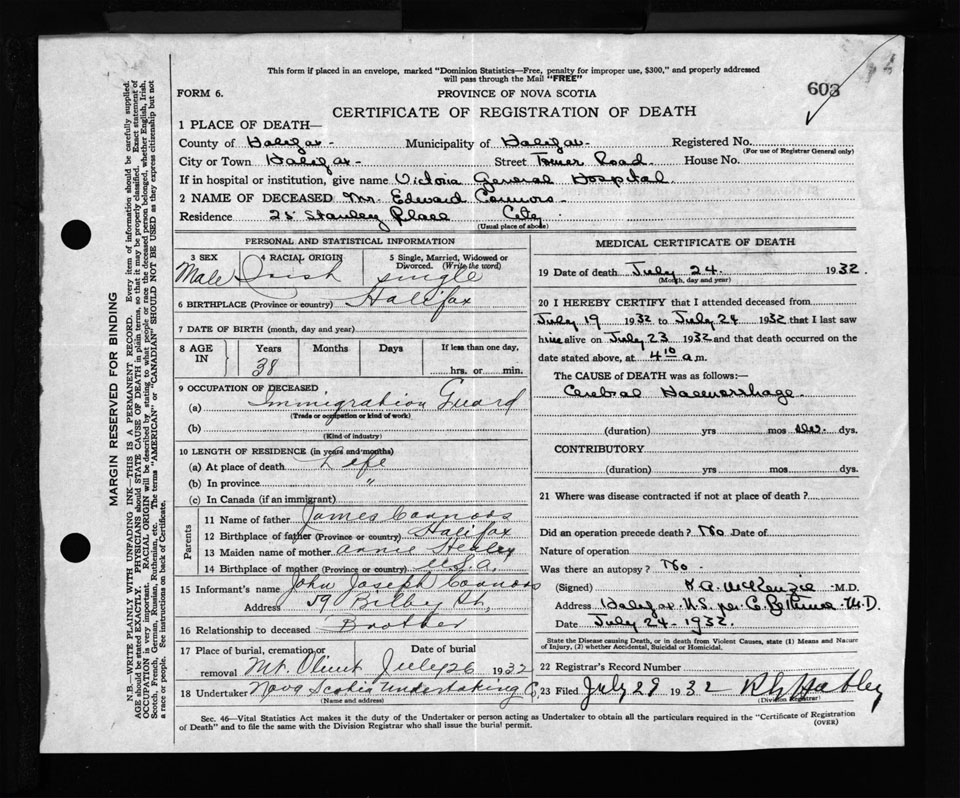 This form if placed in an envelope, marked "Dominion Statistics—Free, penalty for improper use, $300," and properly addressed
will pass through the Mail "FREE"
603
FORM 6. PROVINCE OF NOVA SCOTIA
CERTIFICATE OF REGISTRATION OF DEATH
1 PLACE OF DEATH—
County of Halifax Municipality of Halifax Registered No.
(For use of Registrar General only)
City or Town Halifax Street Tower Road House No.
If in hospital or institution, give name Victoria General Hospital
2 NAME OF DECEASED Mr. Edward Connors
Residence 25 Stanley Place City
(Usual place of abode)
PERSONAL AND STATISTICAL INFORMATION
3 SEX 4 RACIAL ORIGIN 5 Single, Married, Widowed or
Divorced. (Write the word)
Male Irish single
6 BIRTHPLACE (Province or country) Halifax
7 DATE OF BIRTH (month, day and year)
8 AGE IN Years Months Days If less than one day,
38 hrs. or min.
9 OCCUPATION OF DECEASED
(a) Immigration Guard
(Trade or occupation or kind of work)
(b)
(Kind of industry)
10 LENGTH OF RESIDENCE (in years and months)
(a) At place of death Life
(b) In province "
(c) In Canada (if an immigrant)
Parents
11 Name of father James Connors
12 Birthplace of father (Province or country) Halifax
13 Maiden name of mother Annie Healey
14 Birthplace of mother (Province or country) U.S.A.
15 Informant's name John Joseph Connors
Address 59 Bilby St.
16 Relationship to deceased Brother
17 Place of burial, cremation or Date of burial
removal Mt. Olivet July 26 1932
18 Undertaker Nova Scotia Undertaking Co.
(Name and address)
MEDICAL CERTIFICATE OF DEATH
19 Date of death July 24 1932.
(Month, day and year)
20 I HEREBY CERTIFY that I attended deceased from
July 19 1932 to July 24 1932 that I last saw
him alive on July 23 1932 and that death occurred on the
date stated above, at 4 10 a m.
The CAUSE of DEATH was as follows:—
Cerebral Haemorrhage
(duration) yrs mos dys.
CONTRIBUTORY
(duration) yrs mos dys.
21 Where was disease contracted if not at place of death?
Did an operation precede death? No Date of
Nature of operation
Was there an autopsy? No
(Signed) McKenzie M.D.
Address Halifax N.S. per M.D.
Date July 24-1932.
State the Disease causing Death, or in death from Violent Causes, state (1) Means and Nature
of Injury, (2) whether Accidental, Suicidal or Homicidal.
22 Registrar's Record Number
23 Filed July 29 1932
(Division Registrar)
Sec. 46—Vital Statistics Act makes it the duty of the Undertaker or person acting as Undertaker to obtain all the particulars required in the "Certificate of Registration
of Death" and to file the same with the Division Registrar who shall issue the burial permit.
(OVER)
MARGIN RESERVED FOR BINDING
N.B.—WRITE PLAINLY WITH UNFADING INK—THIS IS A PERMANENT RECORD. Every item of information should be carefully supplied.
AGE should be stated EXACTLY. PHYSICIANS should STATE CAUSE OF DEATH in plain terms, so that it may be properly classified. Exact statement of
OCCUPATION is very important. RACIAL ORIGIN will be described by stating to what people or race the deceased person belonged, whether English, Irish,
Scotch, French, German, Russian, Ruthenian, etc. The terms "AMERICAN" or "CANADIAN" SHOULD NOT BE USED as they express citizenship but not
a race or people. See instructions on back of Certificate.